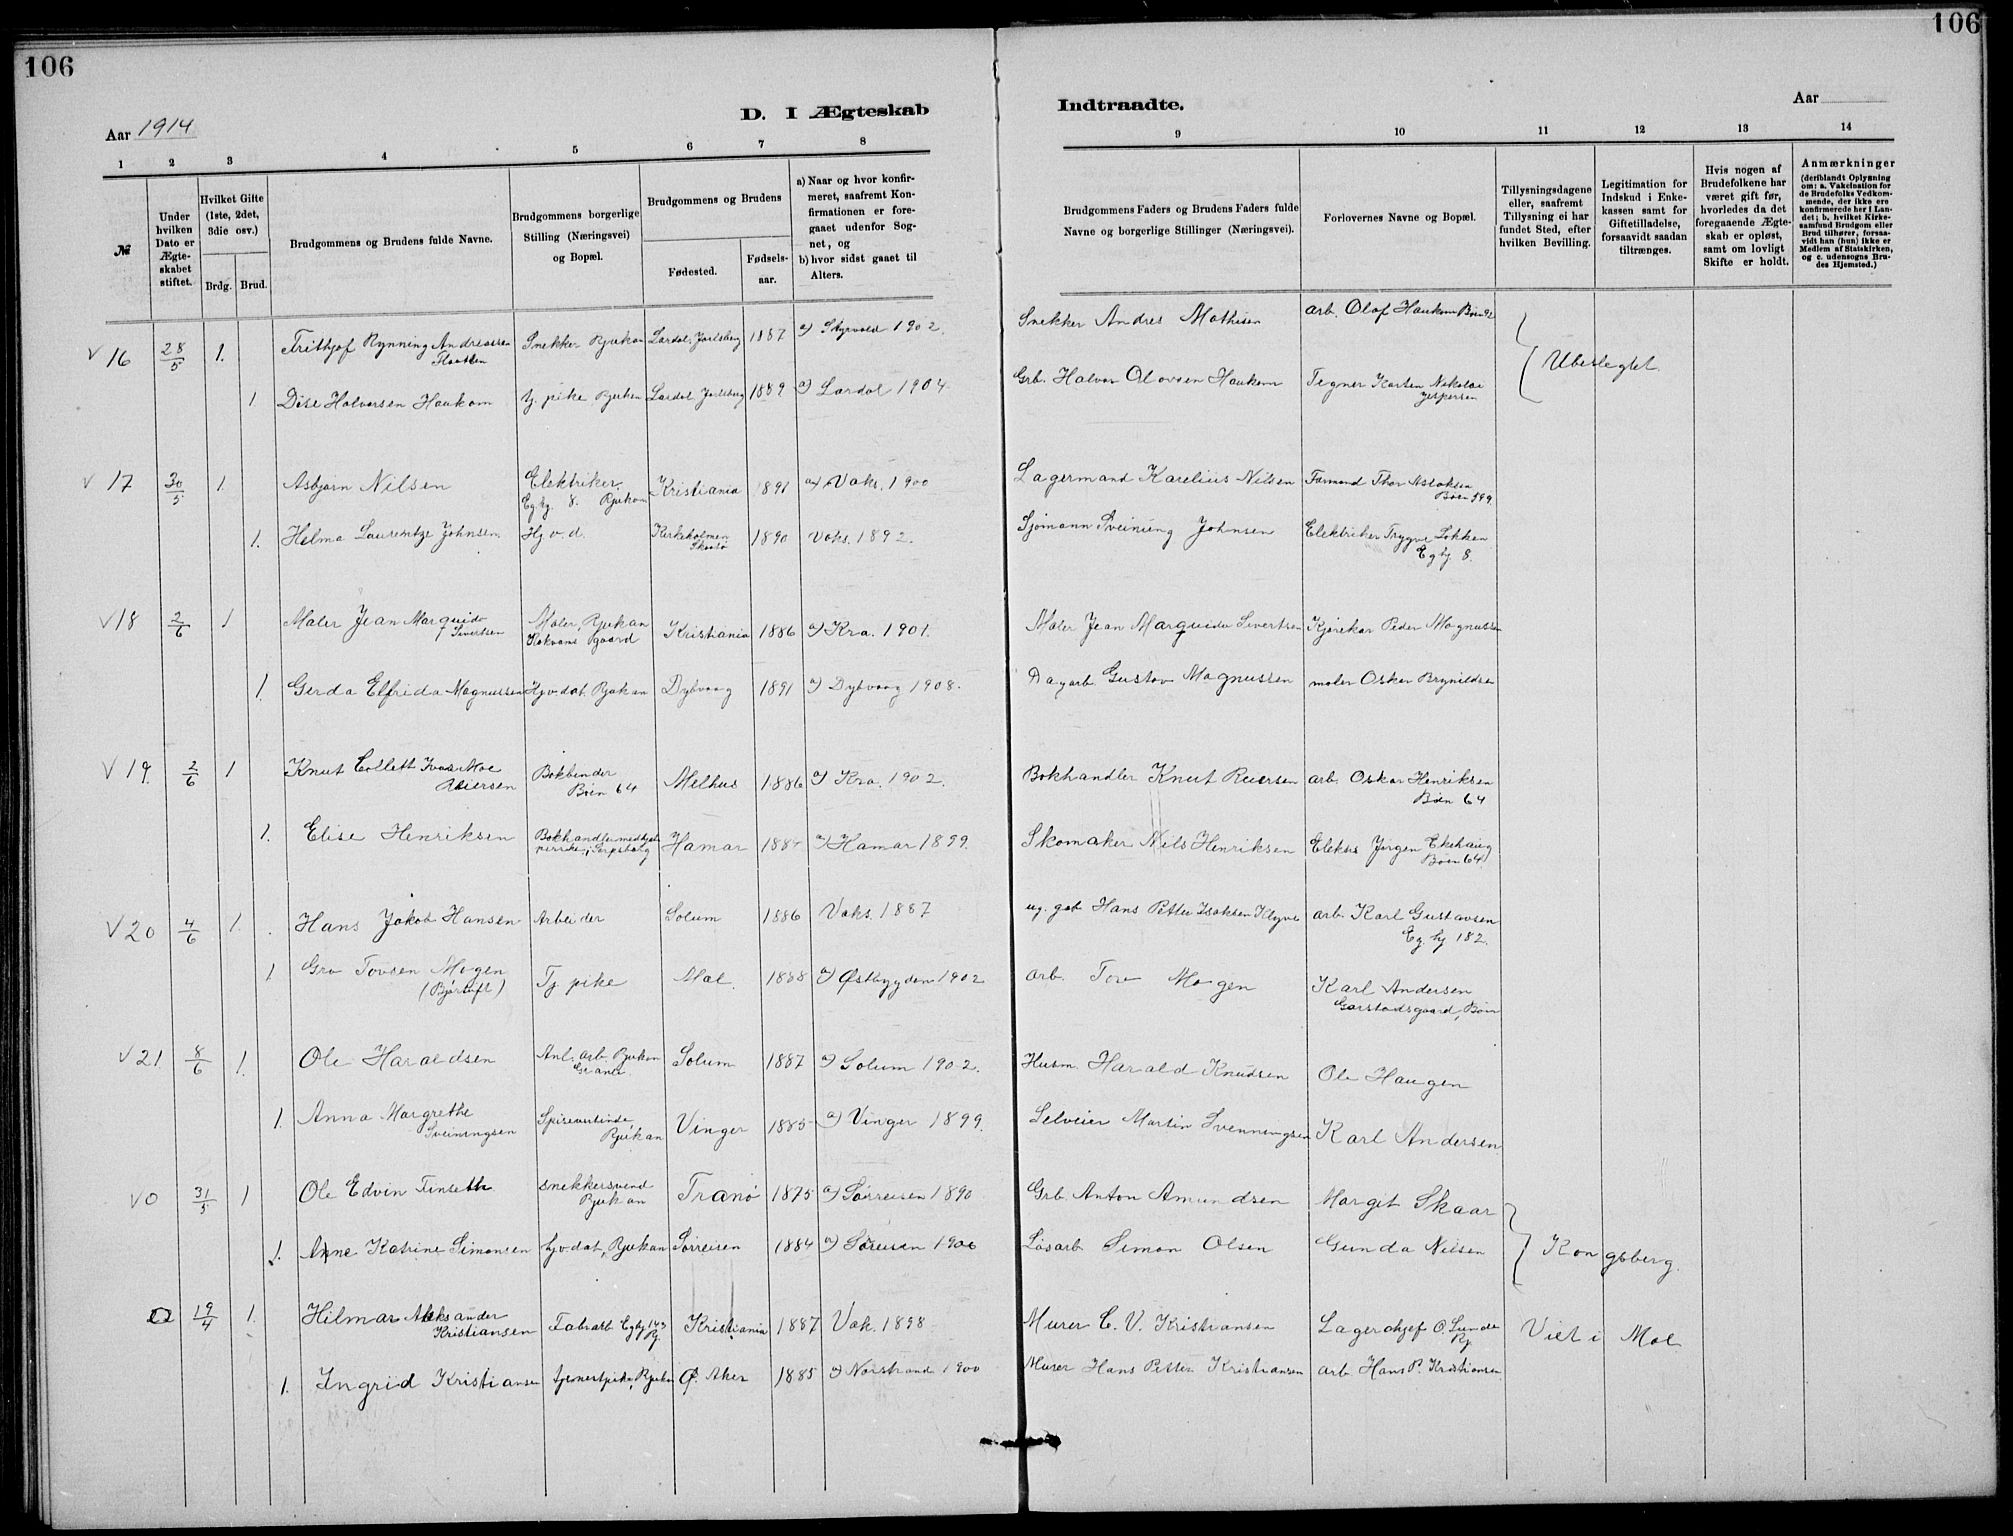 106
106
Aar 1914
D. I Ægteskab
Indtraadte.
Aar
1 2 3 4 5 6 7 8 9 10 11 12 13 14
№
Under hvilken Dato er Ægteskabet stiftet.
Hvilket Gifte (1ste, 2det, 3die osv.)
Brdg. Brud.
Brudgommens og Brudens fulde Navne.
Brudgommens borgerlige Stilling (Næringsvei) og Bopæl.
Brudgommens og Brudens
Fødested.
Fødsels-aar.
a) Naar og hvor konfirmeret, saafremt Konfirmationen er foregaaet udenfor Sognet, og
b) hvor sidst gaaet til Alters.
Brudgommens Faders og Brudens Faders fulde Navne og borgerlige Stillinger (Næringsvei).
Forlovernes Navne og Bopæl.
Tillysningsdagene eller, saafremt Tillysning ei har fundet Sted, efter hvilken Bevilling.
Legitimation for Indskud i Enkekassen samt for Giftetilladelse, forsaavidt saadan tiltrænges.
Hvis nogen af Brudefolkene har været gift før, hvorledes da det foregaaende Ægteskab er opløst, samt om lovligt Skifte er holdt.
Anmærkninger
(deriblandt Oplysning om: a. Vakcination for de Brudefolks Vedkommende, der ikke ere konfirmerede her i Landet; b. hvilket Kirkesamfund Brudgom eller Brud tilhører, forsaavidt han (hun) ikke er Medlem af Statskirken, og c. udensogns Brudes Hjemsted.)
V 16 28/5 1. Frithjof Rynning Andreassen Snekker Rjukan Lardal, Jarlsberg 1887 a) Styrvold 1902. Snekker Andres Mathisen arb. Olaf Haukom Bøen 92
1. Halvorsen Haukom tj. pike Rjukan Lardal Jarlsberg 1889 a) Lardal 1904. Grb. Halvor Olavsen Haukom Tegner Karsten Nikolai Jespersen
V 17 30/5 1. Asbjørn Nilsen Elektriker Eghj. 8. Rjukan Kristiania 1891 a) Vaks. 1900 Lagermand Karelius Nilsen Formand Thor Bøen 599
1. Helma Laurentze Johnsen Hj v. d. Kirkeholmen Skaatø 1890 Vaks. 1892. Sjømann Sveinung Johnsen Elektriker Trygve Løkken Eghj 8.
V 18 2/6 1 Maler Jean Marquido Sivertsen Maler, Rjukan gaard Kristiania 1886 a) Kra. 1901. Maler Jean Marquido Sivertsen Kjørekar Peder Magnussen
1. Gerda Elfrida Magnussen Hjv. dat. Rjukan Dybvaag 1891 a) Dybvaag 1908. Dagarb. Gustav Magnussen maler Oskar Brynildsen
V 19. 2/6 1 Knut Collett Moe Reiersen Bokbinder Bøen 64 Melhus 1886 a) Kra. 1902. Bokhandler Knut Reiersen arb. Oskar Henriksen Bøen 64
1. Elise Henriksen Sarpsborg Hamar 1884 a) Hamar 1899. Skomaker Nils Henriksen Jørgen Ekehaug Bøen 64
V 20 4/6 1. Hans Jakob Hansen Arbeider Solum 1886 Vaks. 1887 Hans Petter Isaksen Klyve arb. Karl Gustavsen Eg. hj 182.
1 Gro Tovsen Mogen Tj pike Mæl. 1888 a) Østbygden 1902 arb. Tov Mogen Karl Andersen Bøen
V 21 8/6 1. Ole Haraldsen Anl. arb. Rjukan Solum 1887 a) Solum 1902. Husm. Harald Knudsen Ole Haugen
1. Anna Margrethe Sveinungsen Spisevertinde, Rjukan Vinger 1885 a) Vinger 1899. Selveier Martin Svenningsen Karl Andersen
V 0 31/5 1 Ole Edvin Finseth snekkersvend Rjukan Tranø 1875 a) Sørreisen 1890 Grb. Anton Amundsen Margit Skaar
1. Anne Katrine Simonsen hjv. dat, Rjukan Sørreisen 1884 a) Søreisen 1900 Løsarb Simon Olsen Gunda Nilsen Kongsberg.
0 19/4 1. Hilmar Aleksander Kristiansen Fabrarb Eghj 143 Rj. Kristiania 1887 Vak. 1898 Murer C. V. Kristiansen Lagerchef O. Lunde Rj Viet i Mæl
1. Ingrid Kristiansen tjenerpike, Rjukan Ø. Aker 1885 a) Norstrand 1900 Murer Hans Petter Kristiansen arb Hans P. Kristiansen